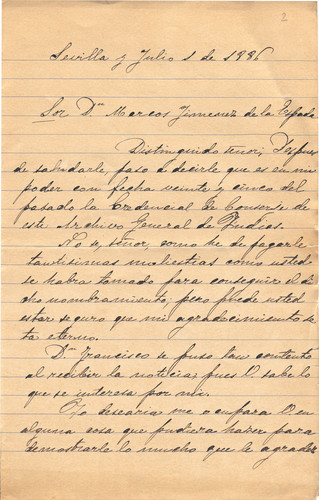 2
Sevilla y Julio 1 de 1886
Sor Dn Marcos Jimenez de la Espada
Distinguido señor; Despues
de saludarle, paso a decirle que es en mi
poder con fecha veinte y cinco del
pasado la Credencial de Conserje de
este Archivo General de Indias.
No se, señor, como he de pagarle
tantisimas molestias como usted
se habra tomado para conseguir el di
cho nombramiento; pero puede usted
estar seguro que mi agradecimiento se
ra eterno.
Dn Francisco se puso tan contento
al recibir la noticia; pues V. sabe lo
que se interesa por mi.
Yo desearia me ocupara V. en
alguna cosa que pudiera hacer para
demostrarle lo mucho que le agradez